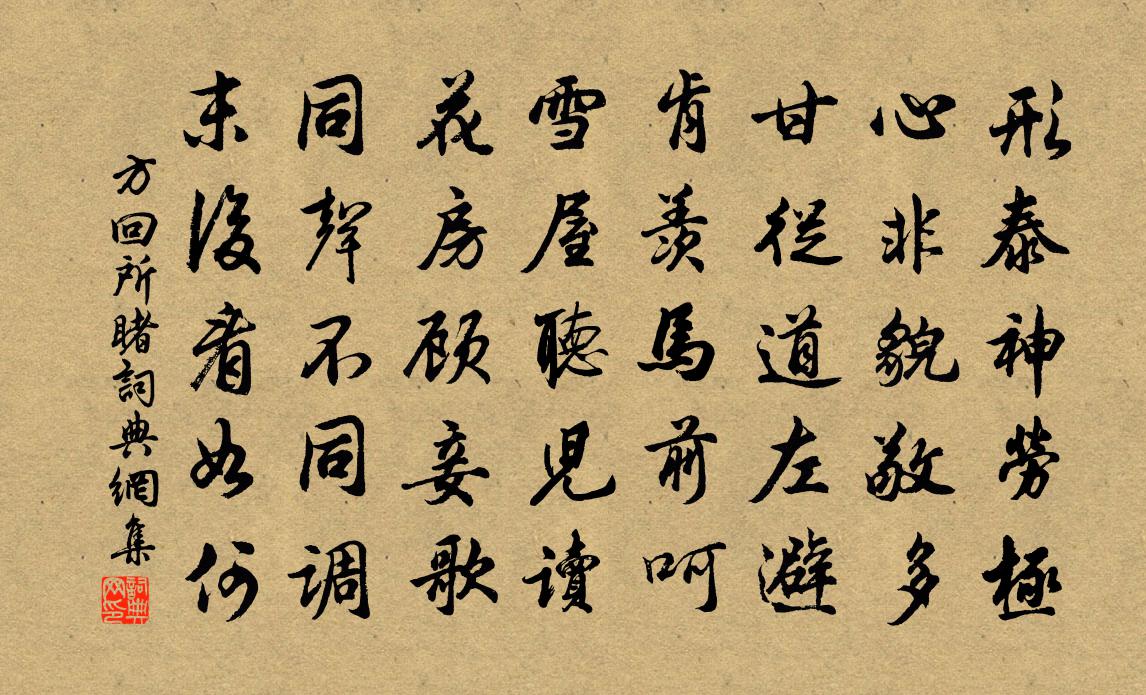 形泰神勞極
心非貌敬多
甘從道左避
肯羨馬前呵
雪屋聽児讀
花房顾妾歌
同聲不同調
末後看如何
方回所睹詞典網集
詞典网印